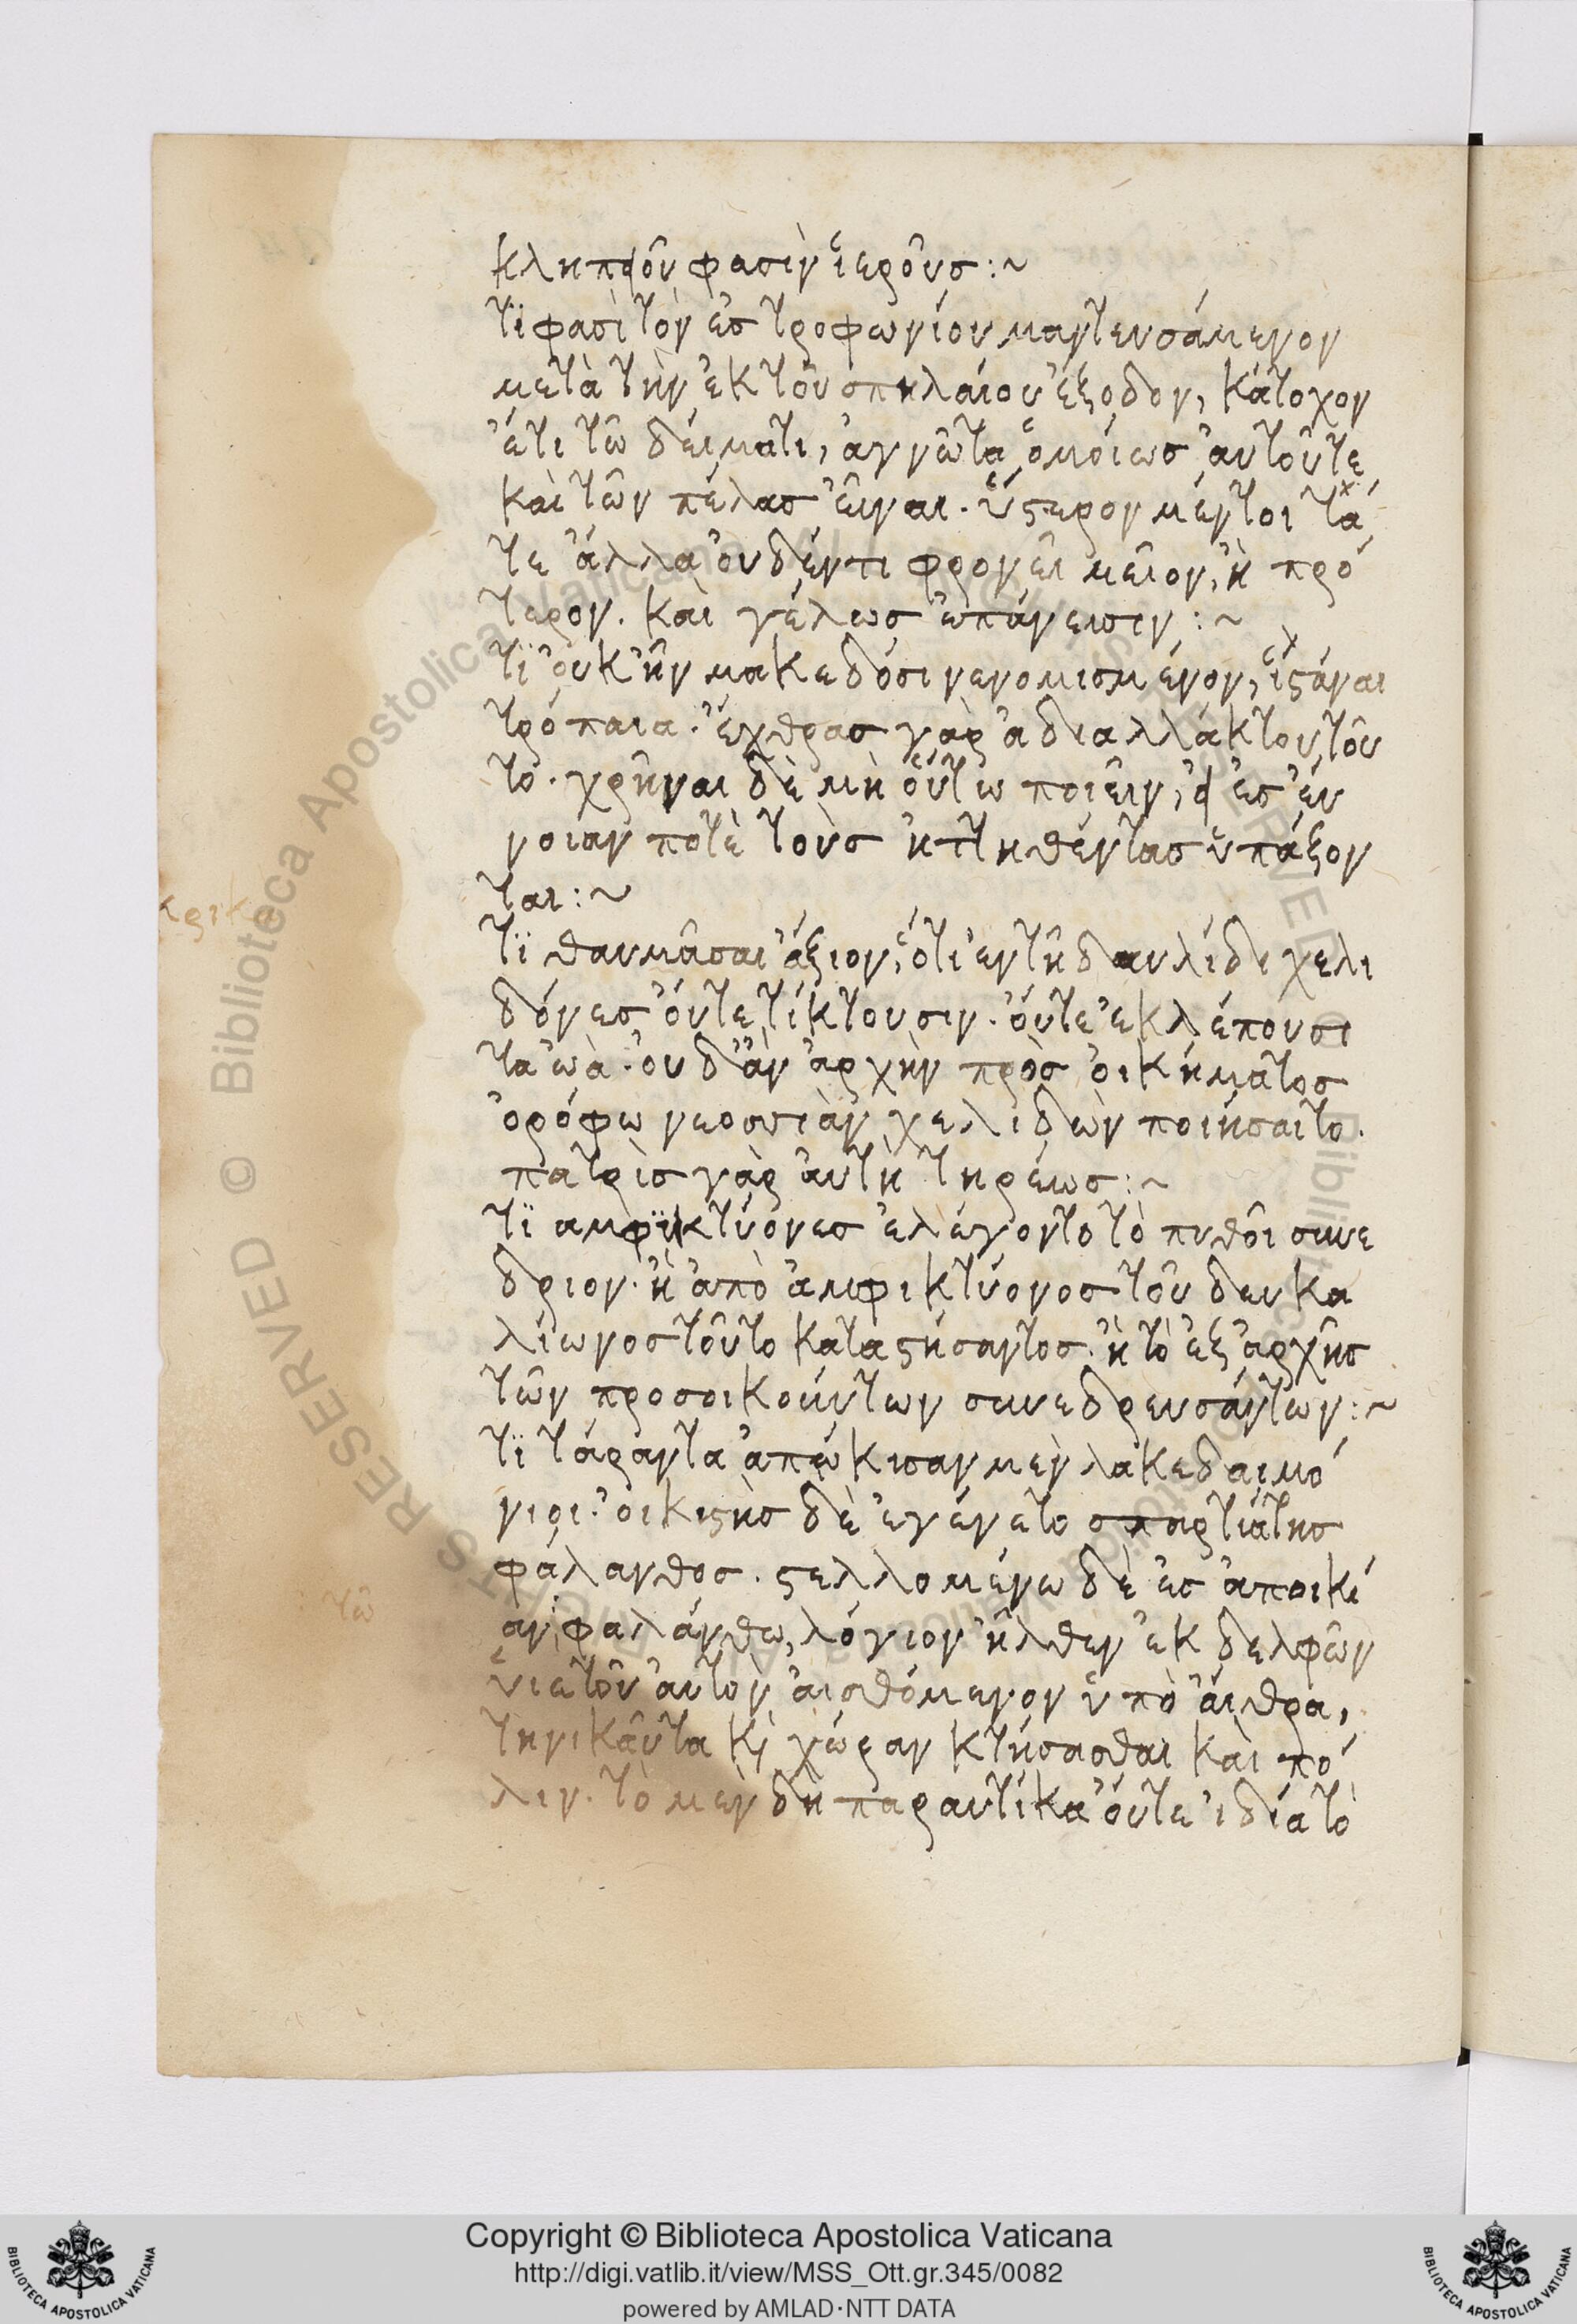 κληπιοῦ φασὶν ἱεροῦς:~
τί φασὶ τὸν ἐς τροφωνίου μαντευσάμενον
μετὰ τὴν ἐκ τοῦ σπηλαίου ἔξοδον, κάτοχον
ἔτι τῶ δείματι, ἀγνῶτα ὁμοίως αὐτοῦτε
καὶ τῶν πέλας εἶναι. ὕστερον μέντοι τά
τε ἄλλα οὐδέντι φρονεῖ μεῖον, ἢ πρό
τερον. καὶ γέλως ἐπάνεισιν:~
τί οὐκ ἦν μακεδόσι νενομισμένον, ἱστάναι
τρόπαια. ἔχθρας γὰρ ἀδιαλλάκτου τοῦ
το. χρῆναι δὲ μὴ οὕτω ποιεῖν, οἳ ἐς εὔ
νοιαν ποτὲ τοὺς ἡττηθέντας ὑπάξον
ται:~
τί θαυμᾶσαι ἄξιον, ὅτι ἐν τῆ δαυλίδι χελι
δόνες οὔτε τίκτουσιν. οὔτε ἐκλέπουσι
τα ὠὰ. οὐδ' ἂν ἀρχὴν πρὸς οἰκήματος
ὀρόφω νεοσσιὰν χελιδὼν ποιήσαιτο.
πατρὶς γὰρ αὐτὴ τηρέως:~
τί αμφικτύονες ἐλέγοντο τὸ πυθοῖ συνε
δριον. ἢ ἀπὸ ἀμφικτύονος τοῦ δευκα
λίωνος τοῦτο καταστήσαντος. ἢ τὸ ἐξ ἀρχῆς
τῶν προσοικούντων συνεδρευσάντων:~
τί τάραντα ἀπώκισαν μὲν λακεδαιμό
νιοι. οἰκιστὴς δὲ ἐγένετο σπαρτιάτης
φάλανθος. στελλομένω δὲ ἐς ἀποικί
αν φαλάνθω, λόγιον ἦλθεν ἐκ δελφῶν
ὑετοῦ αὐτὸν αἰσθόμενον ὑπὸ αἴθρα,
τηνικαῦτα κὶ χώραν κτήσασθαι καὶ πό
λιν. τὸ μὲν δὴ παραυτίκα οὔτε ἰδία τὸ
τῶ
Copyright © Biblioteca Apostolica Vaticana
http://digi.vatlib.it/view/MSS_Ott.gr.345/0082
powered by AMLAD·NTT DATA